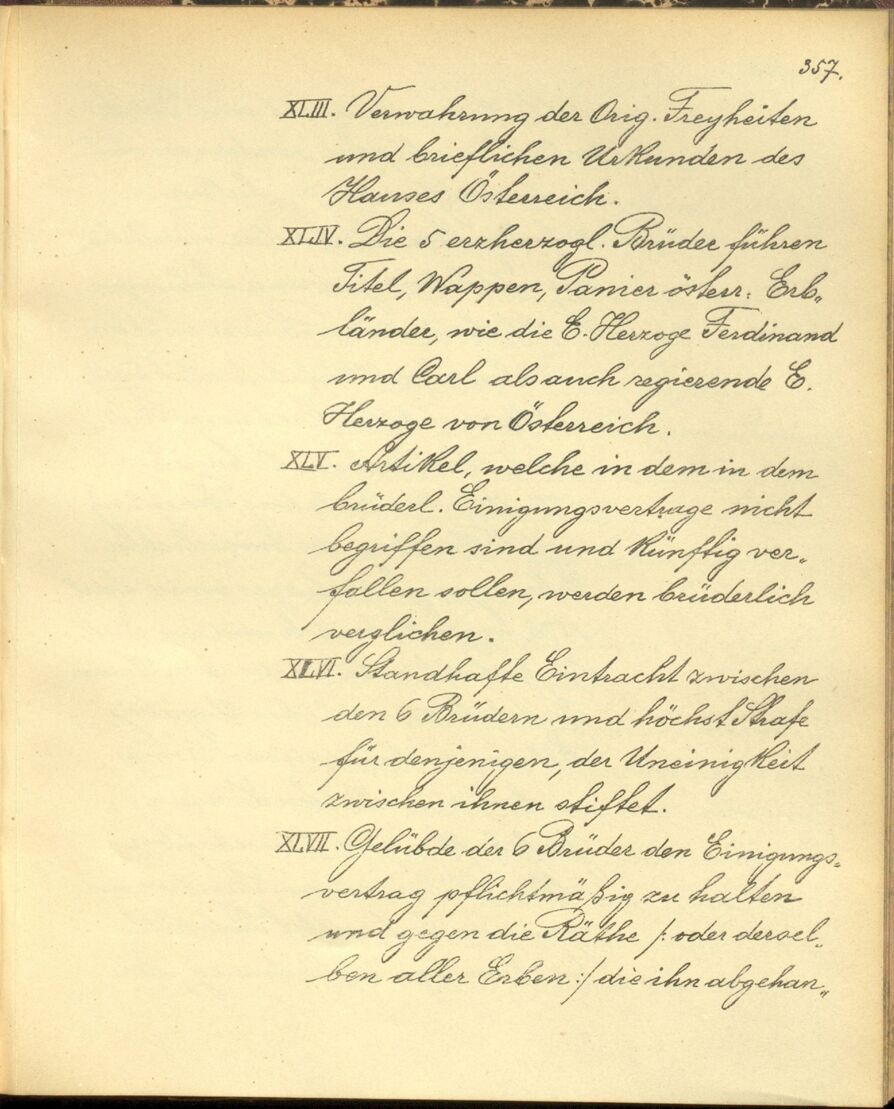 357.
XLIII. Verwahrung der Orig. Freyheiten
und brieflichen Urkunden des
Hauses Österreich.
XLIV. Die 5 erzherzogl. Brüder führen
Titel, Wappen, Panier österr: Erb„
länder, wie die E. Herzoge Ferdinand
und Carl als auch regierende E.
Herzoge von Österreich.
XLV. Artikel, welche in dem in dem
brüderl. Einigungsvertrage nicht
begriffen sind und künftig ver„
fallen sollen, werden brüderlich
verglichen.
XLVI. Standhafte Eintracht zwischen
den 6 Brüdern und höchst Strafe
für denjenigen, der Uneinigkeit
zwischen ihnen stiftet.
XLVII. Gelübde der 6 Brüder den Einigungs„
vertrag pflichtmäßig zu halten
und gegen die Räthe /: oder dersel„
ben aller Erben :/ die ihn abgehan„